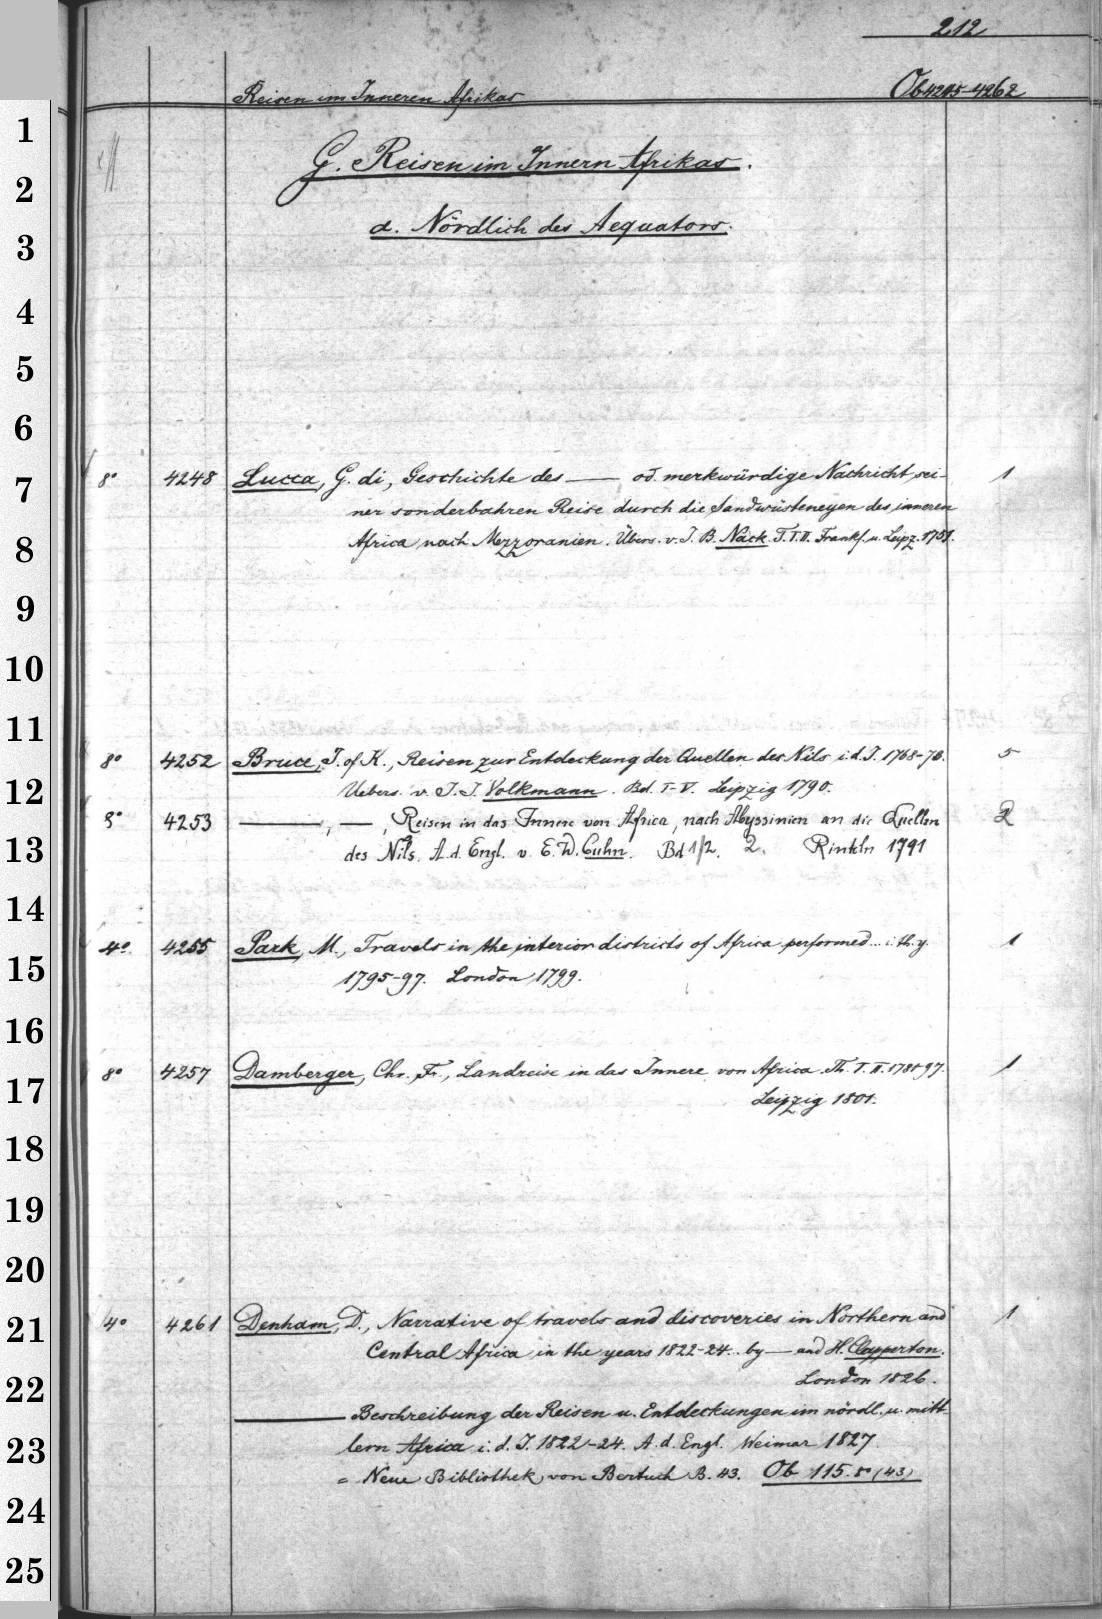 212
Reisen im Inneren Afrikas Ob 4245-4262
G. Reisen im Innern Afrikas.
a. Nördlich des Aequators.
8° 4248 Lucca, G. di, Geschichte des —— od. merkwürdige Nachricht sei- 1
ner sonderbahren Reise durch die Sandwüsteneyen des inneren
Africa nach Mezzoranien. Übers. v. J. B. Nack. T. I. II. Frankf. u. Leipz. 1751.
8° 4252 Bruce, J. of K., Reisen zur Entdeckung der Quellen des Nils i. d. J. 1768-73. 5
Uebers. v. J. J. Volkmann. Bd. I-V. Leipzig 1790.
8° 4253 ——, —, Reisen in das Innere von Africa, nach Abyssinien an die Quellen 2
des Nils. A. d. Engl. v. E. W. Cuhn. Bd 1/2. 2. Rinteln 1791
4° 4255 Park, M., Travels in the interior districts of Africa performed... i. th. y. 1
1795-97. London 1799.
8° 4257 Damberger, Chr. Fr., Landreise in das Innere von Africa. Th. I. II. 1781-97. 1
Leipzig 1801.
4° 4261 Denham, D., Narrative of travels and discoveries in Northern and 1
Central Africa in the years 1822-24.. by — and H. Clapperton.
London 1826.
—— Beschreibung der Reisen u. Entdeckungen im nördl. u. mitt-
lern Africa i. d. J. 1822-24. A. d. Engl. Weimar 1827
= Neue Bibliothek von Bertuch B. 43. Ob 115. 8° (43)
1
2
3
4
5
6
7
8
9
10
11
12
13
14
15
16
17
18
19
20
21
22
23
24
25